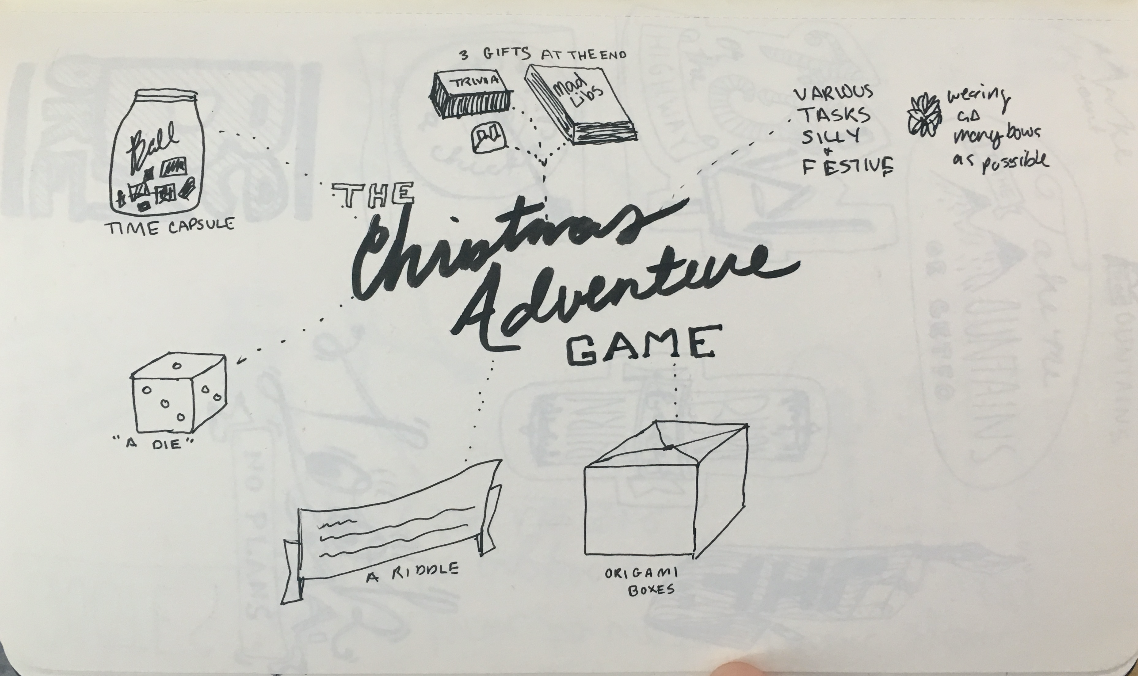 3 GIFTS AT THE END
TRIVIA
mad
Libs
VARIOUS
TASKS
SILLY
+
FESTIVE
wearing
as
many bows
as possible
Ball
TIME CAPSULE
THE
Christmas
Adventure
GAME
"A DIE"
A RIDDLE
ORIGAMI
BOXES